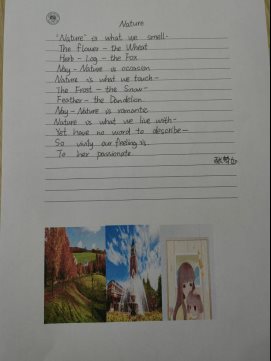 Nature
"Nature" is what we smell-
The Flower - the Wheat
Herb - Log - the Fox
Nay - Nature is occasion
Nature is what we touch-
The Frost - the Snow-
Feather - the Dandelion
Nay - Nature is romantic
Nature is what we live with-
Yet have no word to describe-
So our feeling is
To her passionate